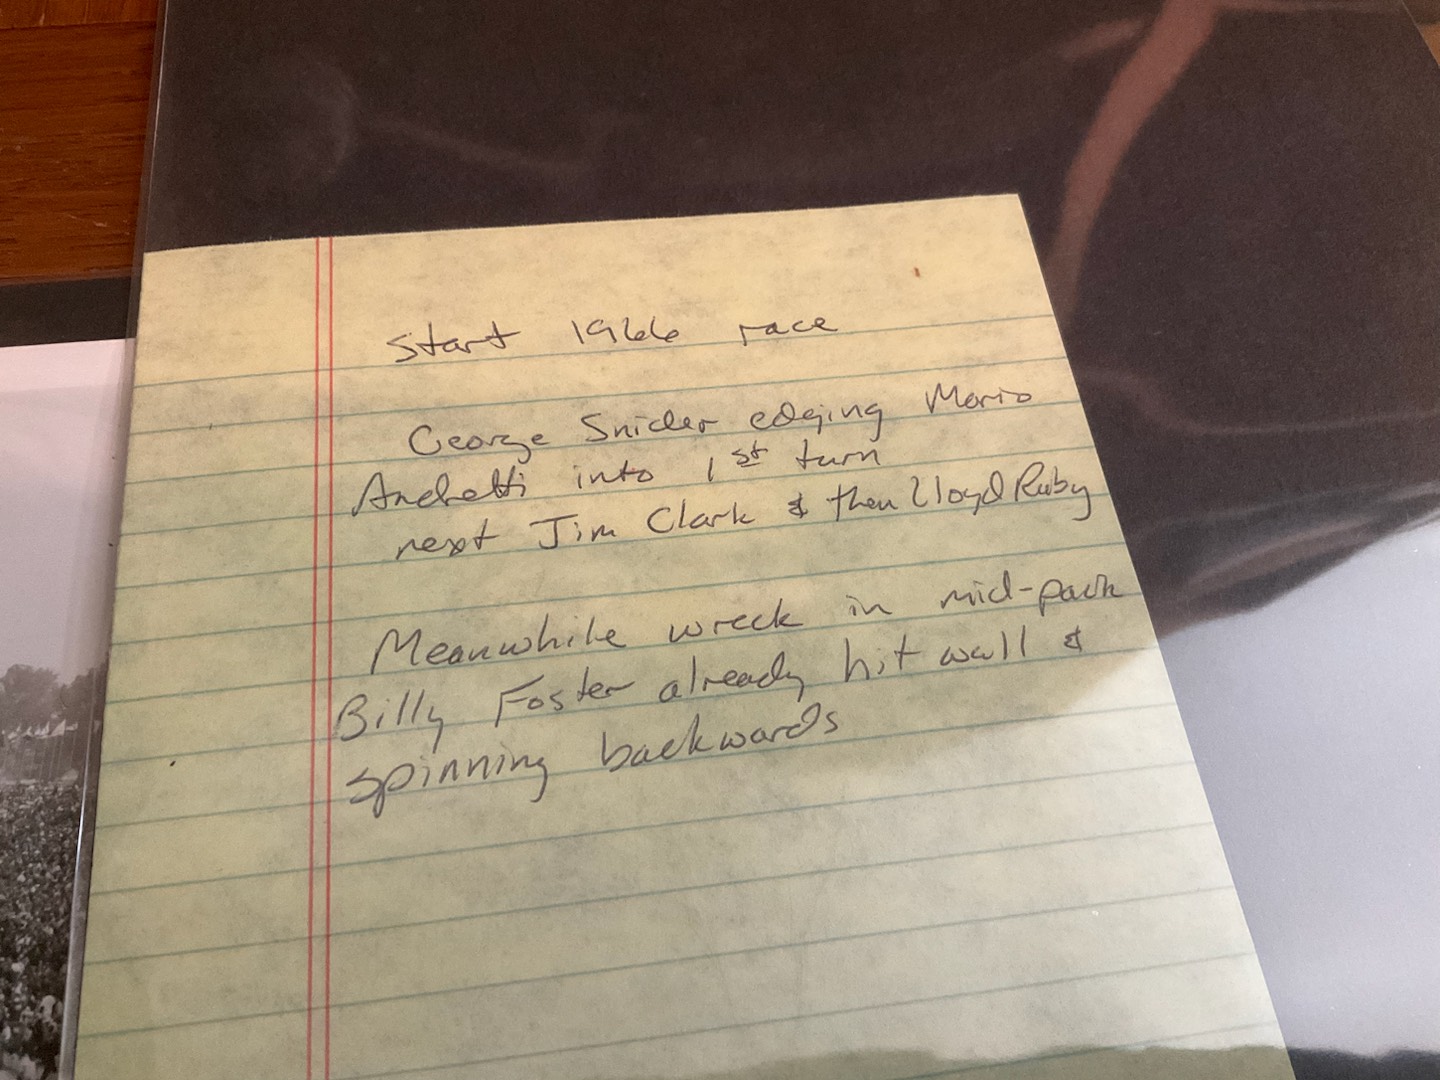 Start 1966 race
George Snider edging Mario
Andretti into 1st turn
next Jim Clark & then Lloyd Ruby
Meanwhile wreck in mid-pack
Billy Foster already hit wall &
spinning backwards